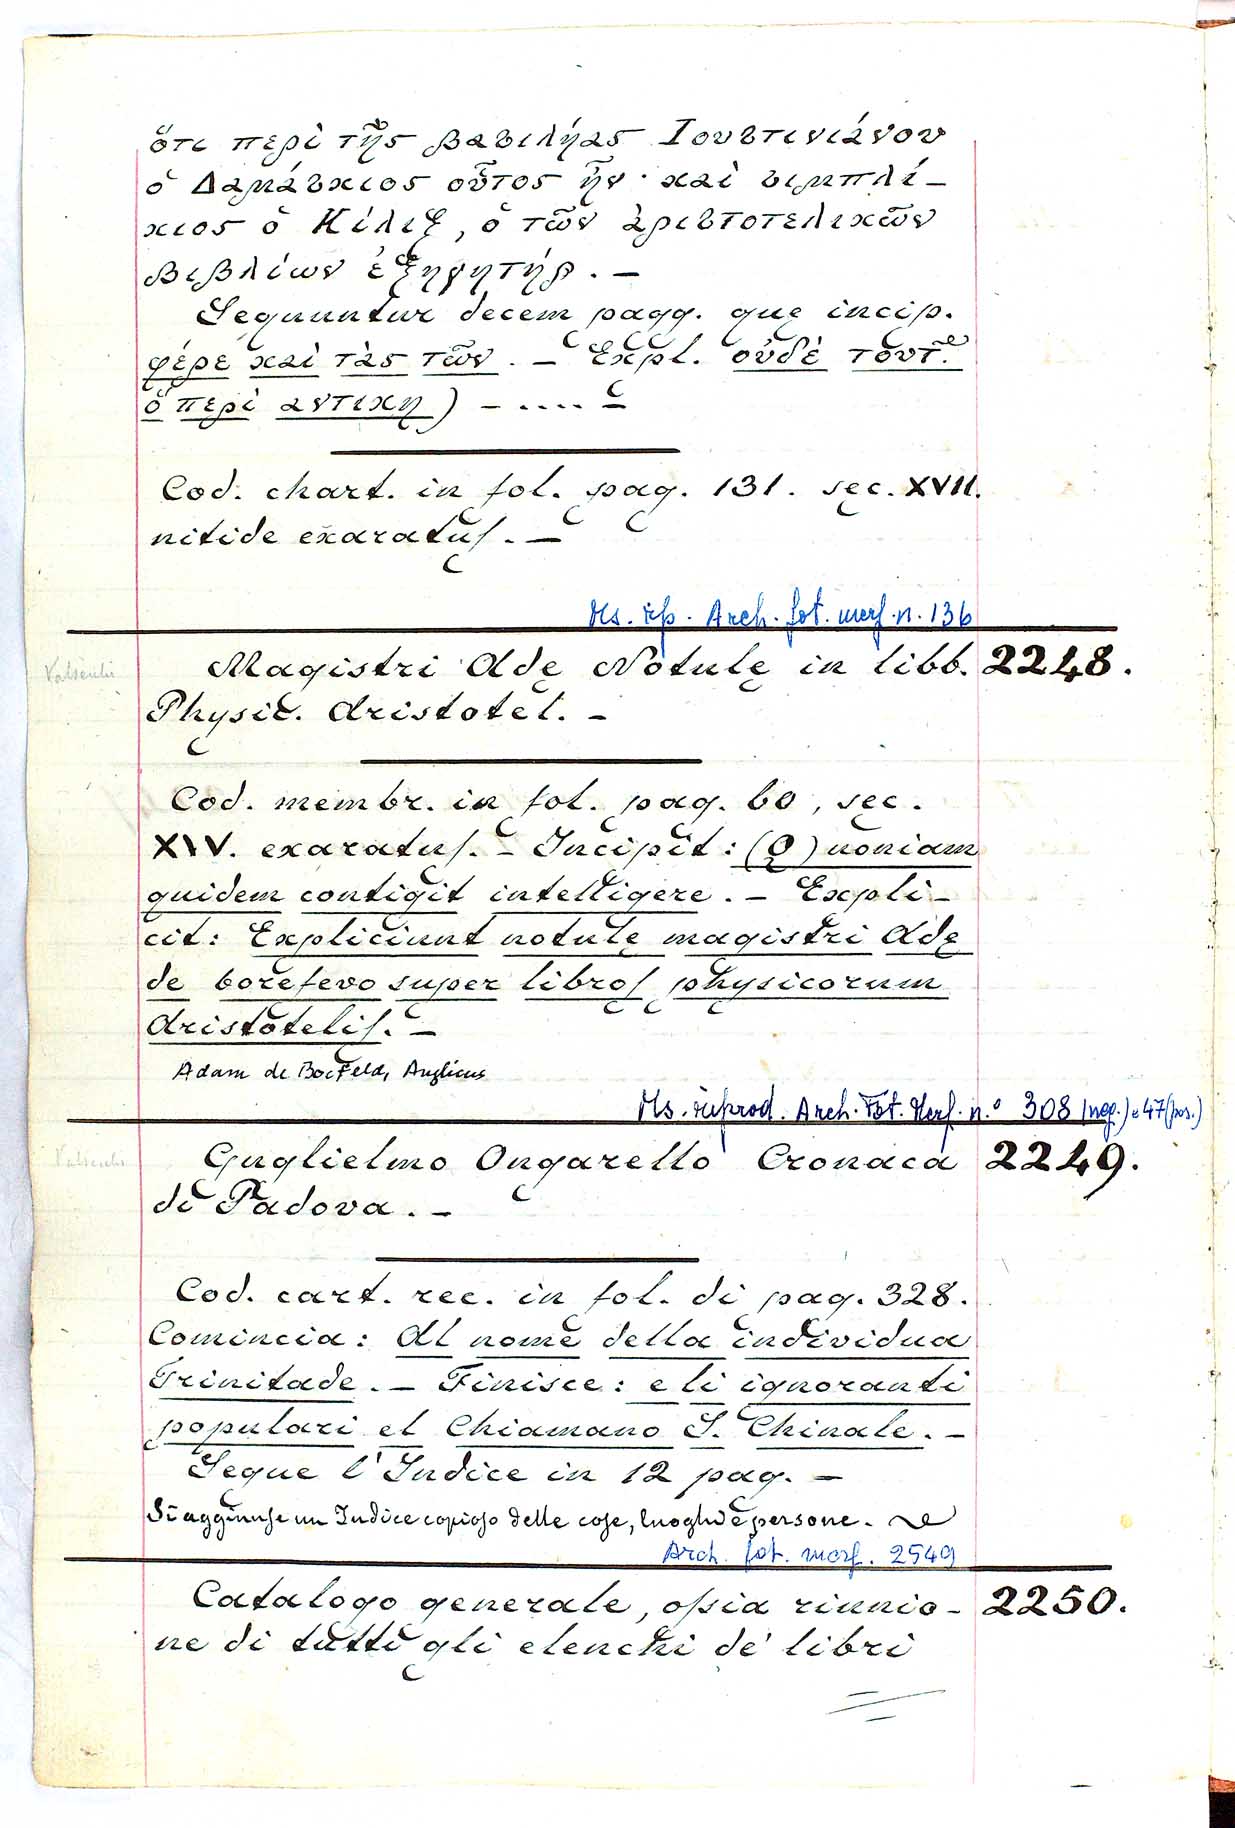 ὅτι περὶ τῆς βασιλήας Ιουστινιάνου
ὁ Δαμάσκιος οὗτος ἦν · καὶ σιμπλί-
κιος ὁ Κίλιξ, ὁ τῶν ἀριστοτελικῶν
βιβλίων ἐξηγητήρ. —
Sequuntur decem pagg. quę incip.
φέρε καὶ τὰς τῶν. — Expl. οὐδὲ
ὁ περὶ αντικη) — .... —
Cod. chart. in fol. pag. 131. sęc. XVII.
nitide exaratus. —
Ms. rip. Arch. fot. marc. n. 136
Magistri Adę Notulę in libb. 2248.
Physic. Aristotel. —
Cod. membr. in fol. pag. 60, sęc.
XIV. exaratus. — Incipit: (Q)uoniam
quidem contigit intelligere. — Expli-
cit: Expliciunt notulę magistri Adę
de borefevo super libros physicorum
Aristotelis. —
Adam de Bocfeld, Anglicus
Ms. riprod. Arch. Fot. Marc. n.º 308 (neg.) e 47 (pos.)
Guglielmo Ongarello Cronaca 2249.
di Padova. —
Cod. cart. rec. in fol. di pag. 328.
Comincia: Al nome della individua
Trinitade. — Finisce: e li ignoranti
populari el Chiamano S. Chinale. —
Segue l'Indice in 12 pag. —
Si aggiunse un Indice copioso delle cose, luoghi e persone.
Arch. fot. marc. 2549
Catalogo generale, ossia riunio- 2250.
ne di tutti gli elenchi de' libri